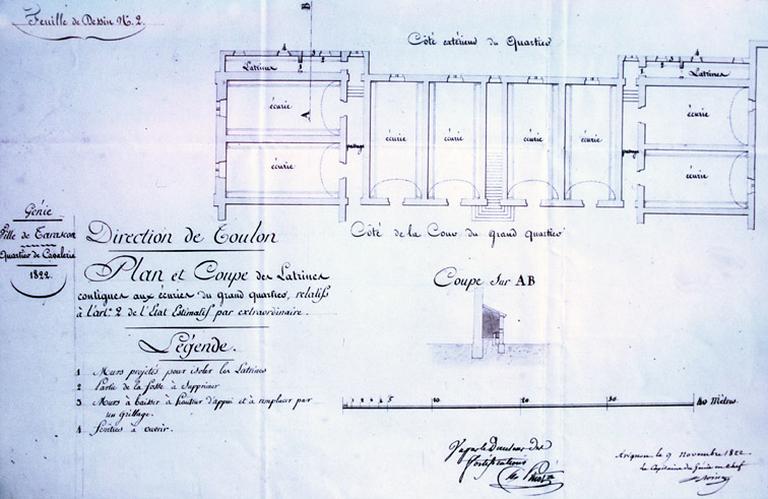 Feuille de Dessin N.º 2.
Côté extérieur du Quartier
Latrines
Latrines
4
4
1
2
3
1
2
3
B
A
écurie
écurie
écurie
écurie
écurie
écurie
écurie
écurie
passage
passage
Côté de la Cour du grand quartier
Génie
Ville de Tarascon
Quartier de Cavalerie
1822
Direction de Toulon
Plan et Coupe des Latrines
contigues aux écuries du grand quartier, relatifs
à l'art.e 2 de l'Etat Estimatif par extraordinaire.
Légende.
1 Murs projetés pour isoler les Latrines
2 Partie de la fosse à supprimer
3 Murs à baisser à hauteur d'appui et à remplacer par
un grillage.
4 Fenêtres à ouvrir.
Coupe sur AB
1 2 3 4 5 10 20 30 40 Mètres
Vu par le Directeur des
fortifications
Avignon le 9 novembre 1822
Le Capitaine du Génie en chef